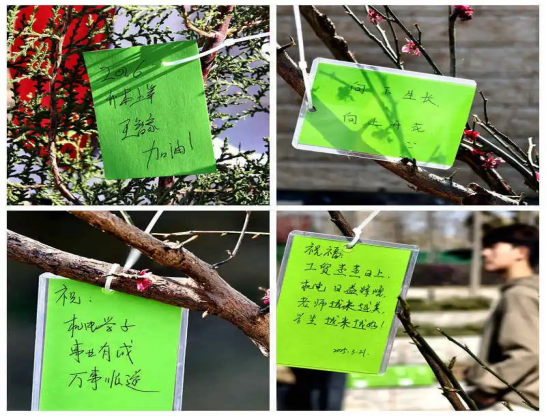 2026
加油!
向下生长,
向上开花
祝:
机电学子
事业有成
万事顺遂
祝福:
工贸蒸蒸日上!
机电日益辉煌,
老师越来越美,
学生越来越好!
2025.3.21.